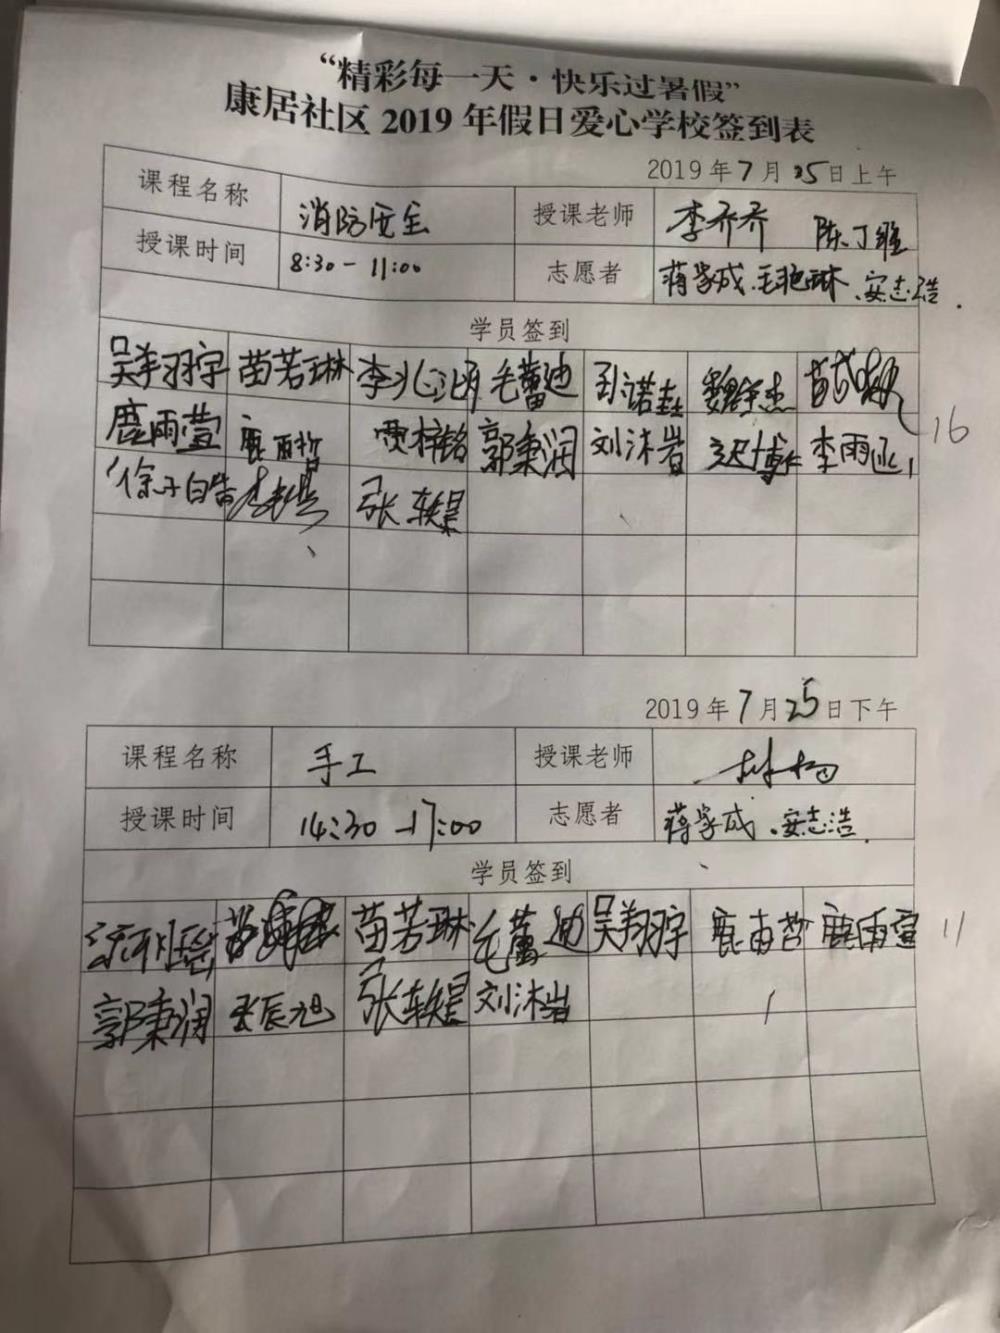 “精彩每一天·快乐过暑假”
康居社区 2019 年假日爱心学校签到表
2019年7月25日上午
课程名称 消防安全 授课老师 李乔乔
授课时间 8:30-11:00 志愿者 蒋学成.毛艳琳.安志浩.
学员签到
吴翔羽宇 苗若琳 毛蕾迪
鹿雨萱 鹿雨哲 贾梓铭 郭秉润 刘沐岩 李雨涵
徐子皓 张轶昊
16
2019年7月25日下午
课程名称 手工 授课老师 林杨
授课时间 14:30-17:00 志愿者 蒋学成.安志浩.
学员签到
苗若琳 毛蕾迪 吴翔宇 鹿雨哲 鹿雨萱 11
郭秉润 张辰旭 张轶昊 刘沐岩